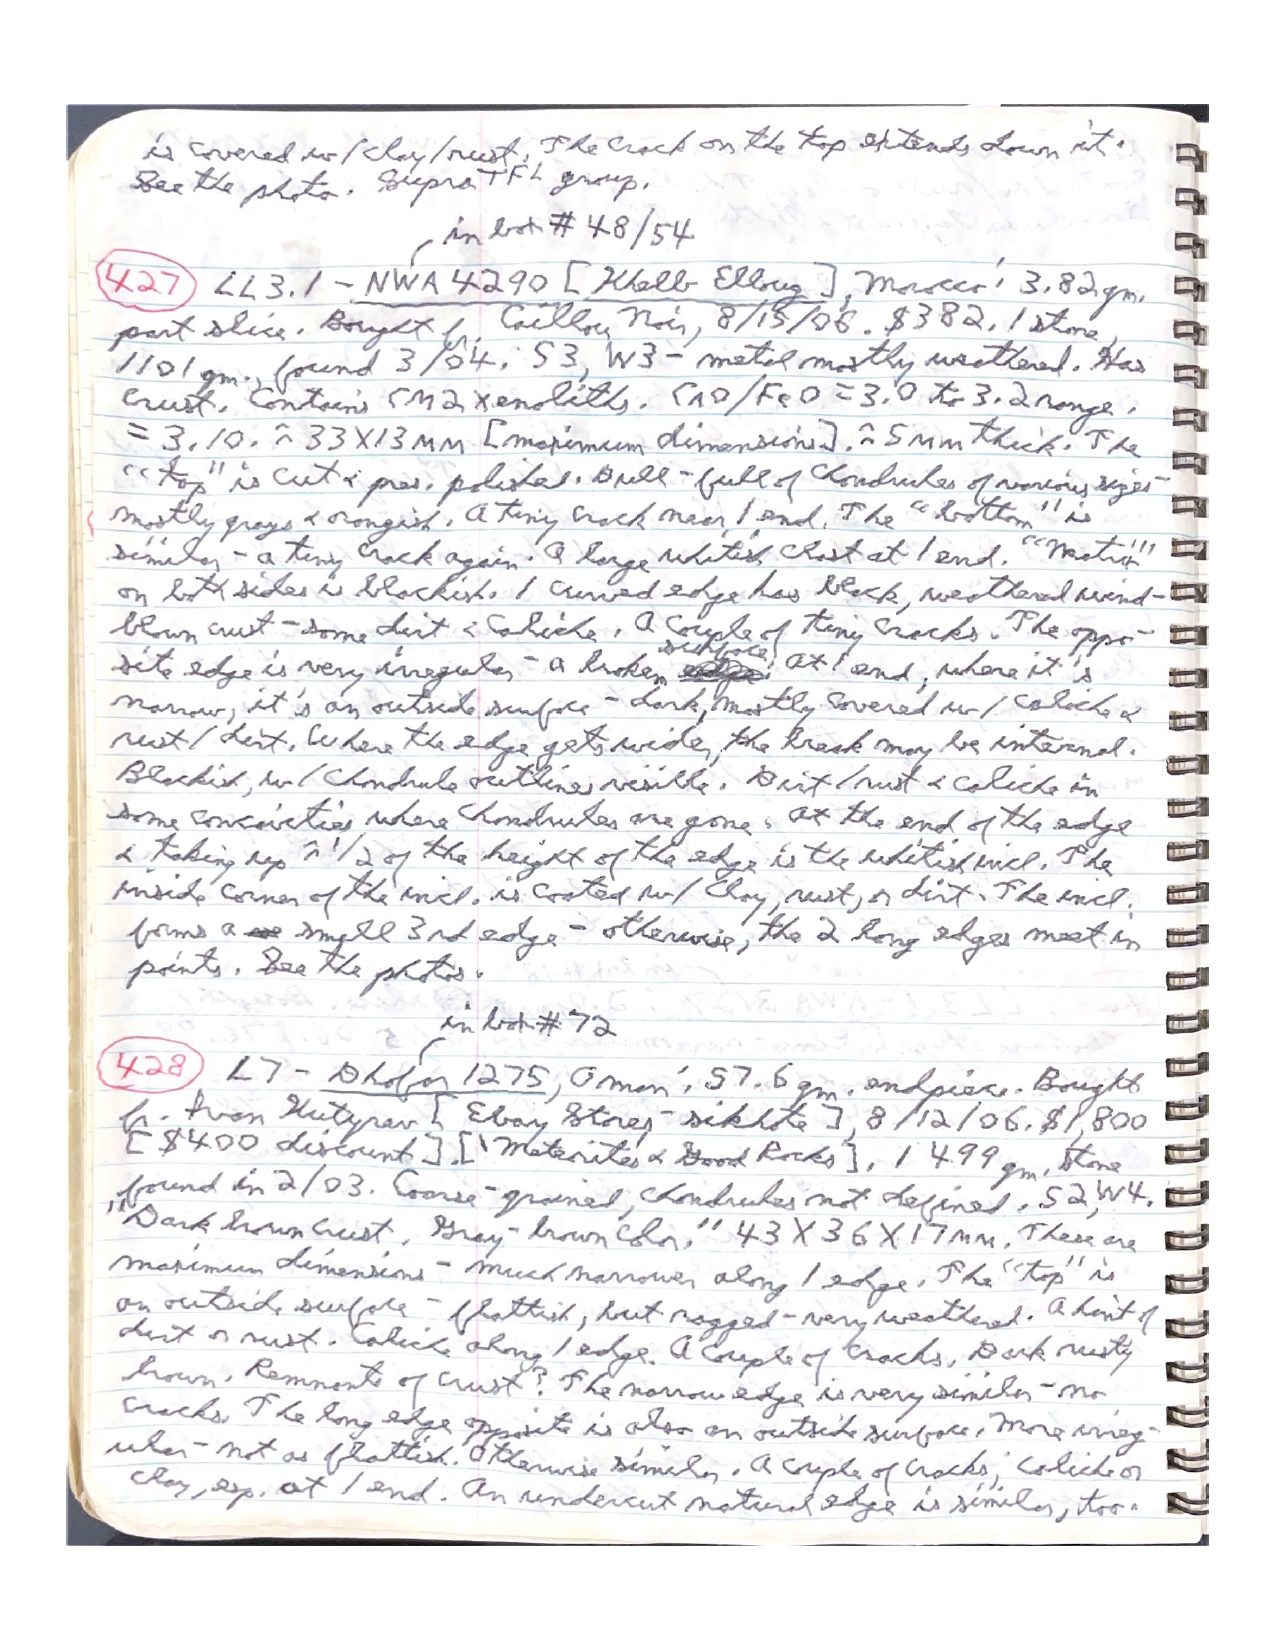 is covered w/ clay/rust. The crack on the top extends down it.
See the photo. Supra TFL group.
in bot. # 48/54
427 LL3.1 - NWA 4290 [Khelb Ellouz], Morocco: 3.82 gm.
part slice. Bought f. Caillou Noir, 8/15/06. $382. 1 stone,
1101 gm., found 3/04. S3, W3 - metal mostly weathered. Has
crust. Contains CM2 xenoliths. CaO/FeO = 3.0 to 3.2 range.
= 3.10. ≈ 33X13 mm [maximum dimensions]. ≈ 5 mm thick. The
"top" is cut & pres. polished. Dull - full of chondrules of various sizes -
mostly grays & orangish. A tiny crack near 1 end. The "bottom" is
similar - a tiny crack again. A large whitish clast at 1 end. "Matrix"
on both sides is blackish. 1 curved edge has black, weathered wind-
blown crust - some dirt & caliche. A couple of tiny cracks. The oppo-
site edge is very irregular - a broken surface. At 1 end, where it's
narrow, it's an outside surface - dark, mostly covered w/ caliche &
rust/dirt. Where the edge gets wide, the break may be internal.
Blackish, w/ chondrule outlines visible. Dirt/rust & caliche in
some concavities where chondrules are gone. At the end of the edge
& taking up ≈ 1/2 of the height of the edge is the whitish incl. The
inside corner of the incl. is coated w/ clay, rust, or dirt. The incl.
forms a small 3rd edge - otherwise, the 2 long edges meet in
points. See the photos.
in bot. # 72
428 L7 - Dhofar 1275, Oman: 57.6 gm. endpiece. Bought
f. Ivan Kutyrev [Ebay Stores - sikhote], 8/12/06. $1,800
[$400 discount]. ["Meteorites & Good Rocks]. 1 499 gm. stone
found in 2/03. Coarse-grained, chondrules not defined. S2, W4.
"Dark brown crust. Gray-brown color." 43X36X17 mm. These are
maximum dimensions - much narrower along 1 edge. The "top" is
an outside surface - flattish, but ragged - very weathered. A hint of
dirt or rust. Caliche along 1 edge. A couple of cracks. Dark rusty
brown. Remnants of crust? The narrow edge is very similar - no
cracks. The long edge opposite is also an outside surface. More irreg-
ular - not as flattish. Otherwise similar. A couple of cracks; caliche or
clay, esp. at 1 end. An undercut natural edge is similar, too.